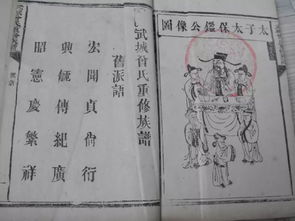 太子太保鑑公像圖
武城曾氏重修族譜
舊派語
宏聞貞尚衍
興毓傳紀廣
昭憲慶繁祥